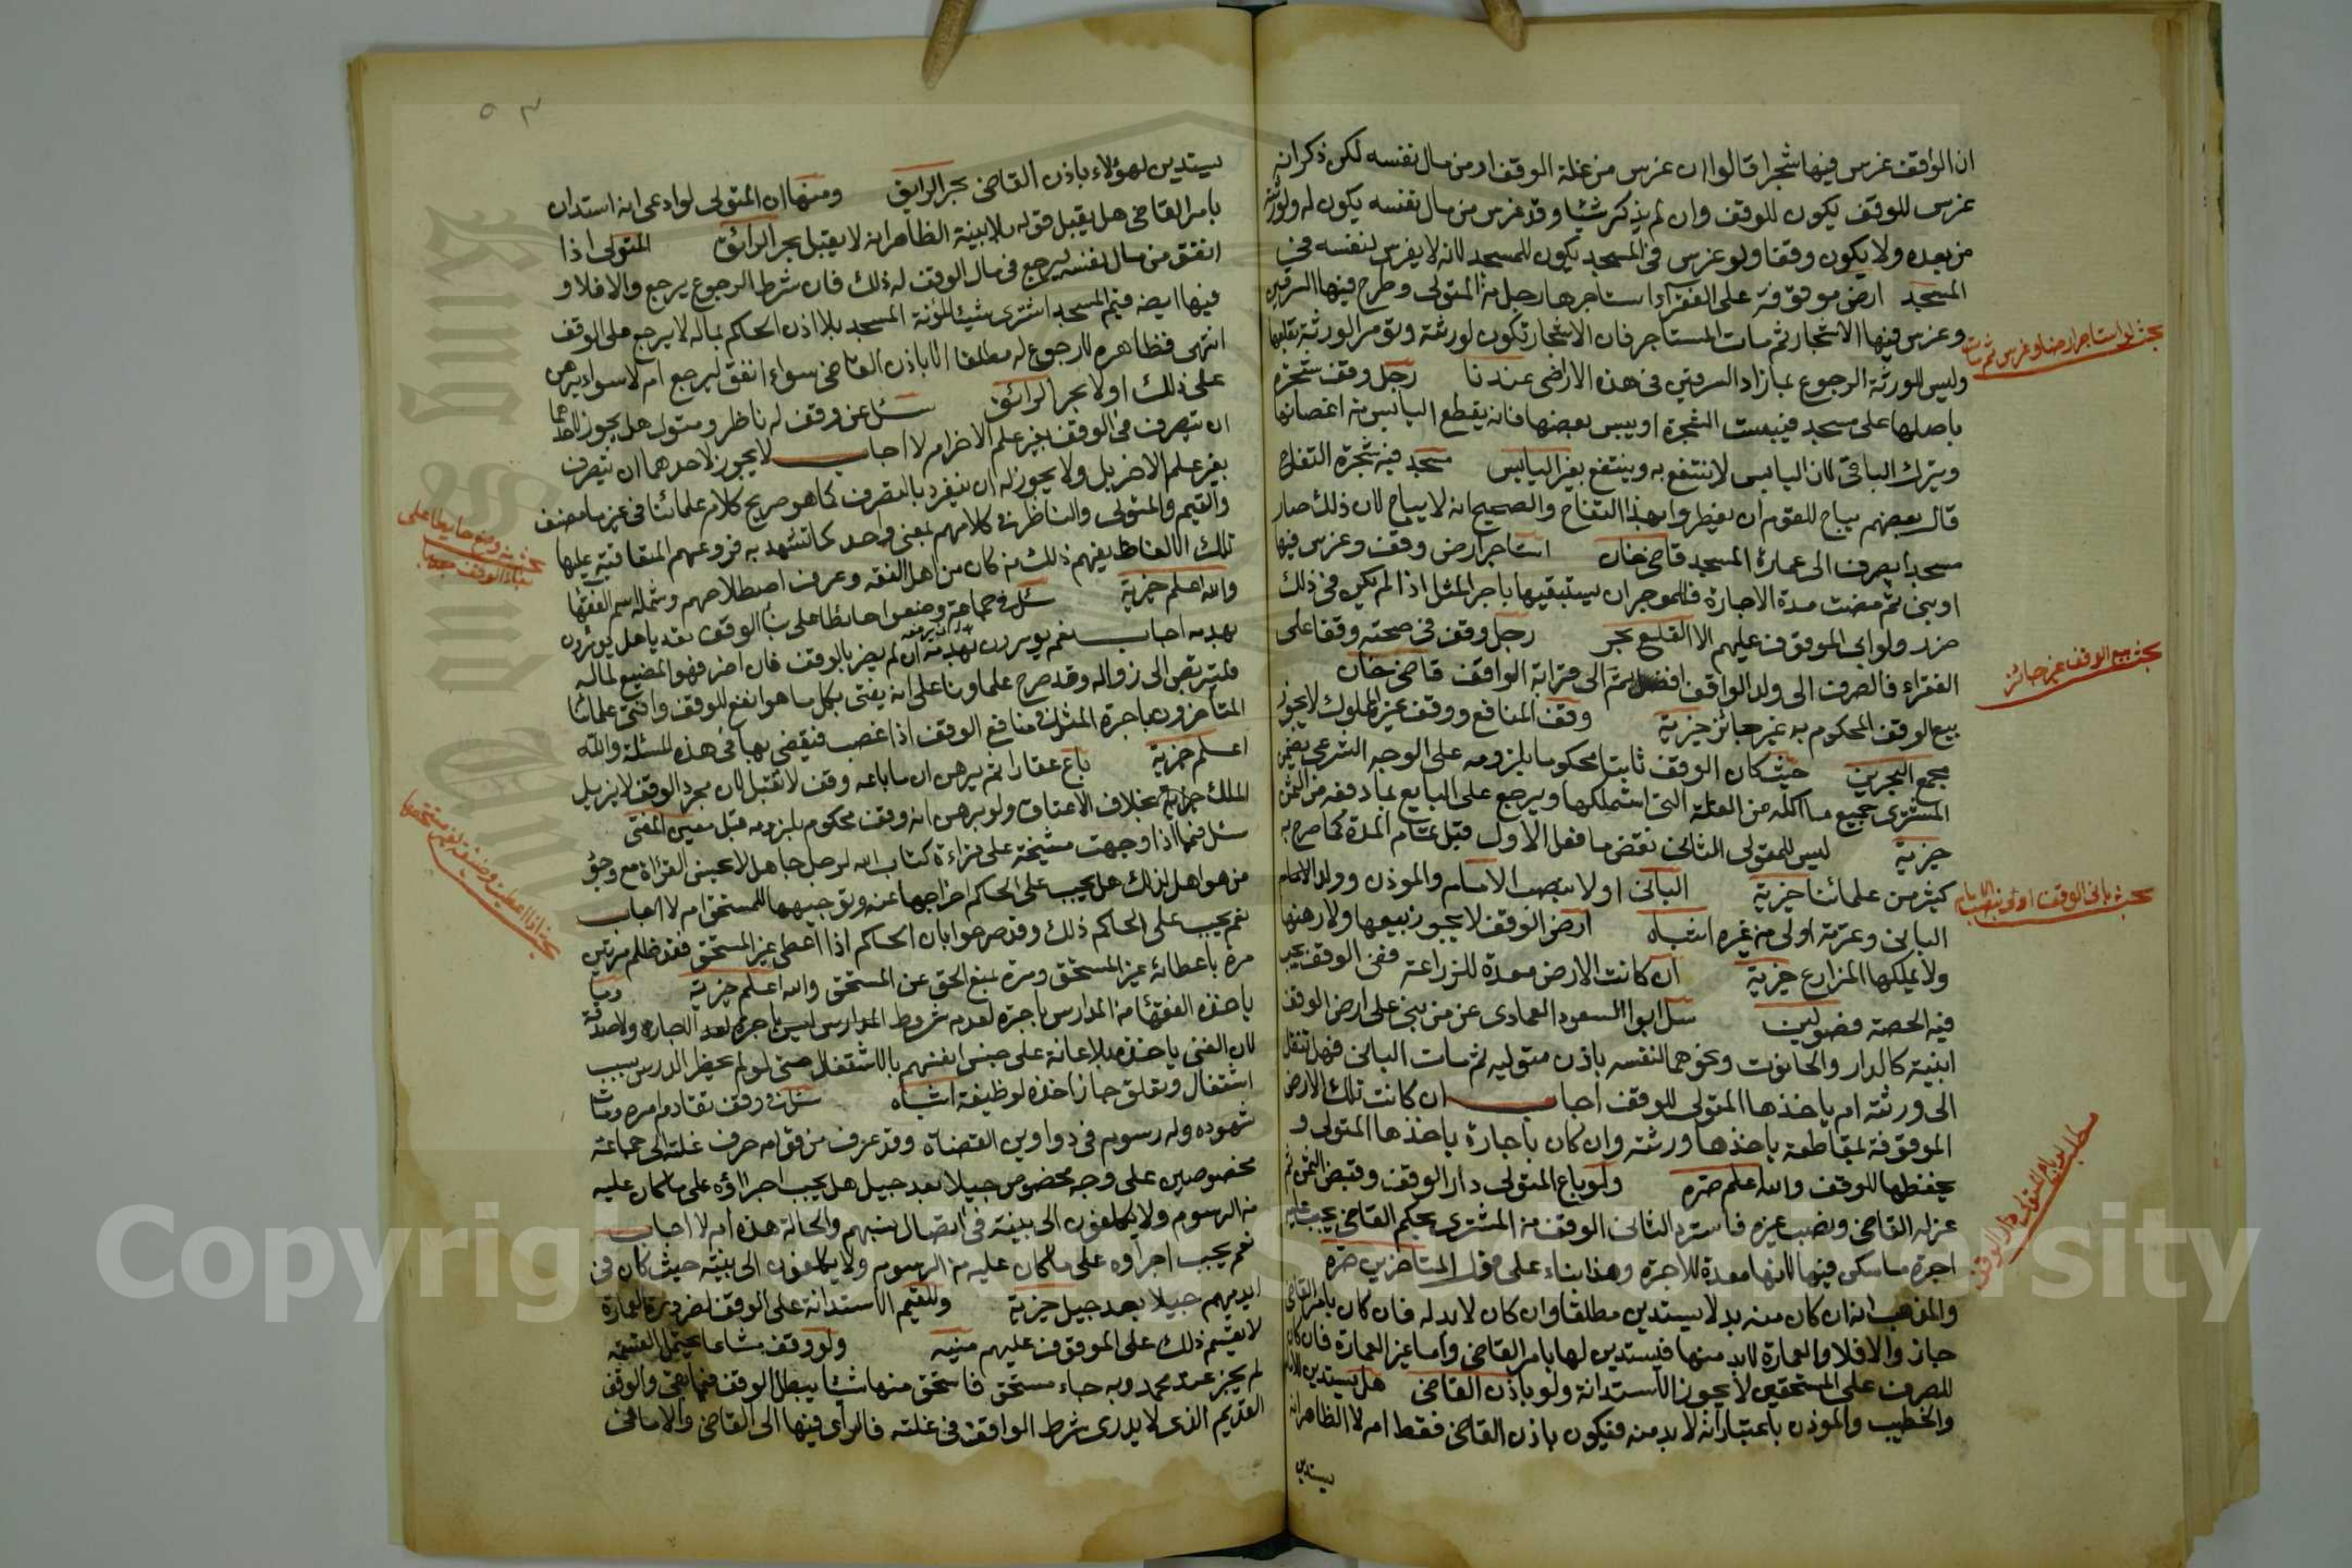 ان الواقف غرس فيها شجرا قالوا ان غرس من غلة الوقف او من مال نفسه لكن ذكر انه
غرس للوقف يكون للوقف وان لم يذكر شيئا وقد غرس من مال نفسه يكون له ولورثته
من بعده ولا يكون وقفا ولو غرس فى المسجد يكون للمسجد لانه لا يغرس لنفسه فى
المسجد ارض موقوفة على الفقرآء استاجرها رجل من المتولى وطرح فيها السرقين
وغرس فيها الاشجار ثم مات المستاجر فان الاشجار تكون لورثته وتؤمر الورثة بقلعها
وليس للورثة الرجوع بما زاد السرقين فى هذه الاراضى عندنا رجل وقف شجرة
باصلها على مسجد فيبست الشجرة او يبس بعضها فانه يقطع اليابس من اغصانها
ويترك الباقى لان اليابس لا ينتفع به وينتفع بغير اليابس مسجد فيه شجرة التفاح
قال بعضهم يباح للقوم ان يفطروا بهذا التفاح والصحيح انه لا يباح لان ذلك صار
مسجدا يصرف الى عمارة المسجد قاضى خان استاجر ارض وقف وغرس فيها
او بنى ثم مضت مدة الاجارة فللموجر ان يستبقيها باجر المثل اذا لم يكن فى ذلك
ضرر ولو ابى الموقوف عليهم الا القلع بحر رجل وقف فى صحته وقفا على
الفقراء فالصرف الى ولد الواقف افضل ثم الى قرابة الواقف قاضى خان
بيع الوقف المحكوم به غير جائز خيرية وقف المنافع ووقف غير المملوك لا يجوز
مجمع البحرين حيث كان الوقف ثابتا محكوما بلزومه على الوجه الشرعى يضمن
المشترى جميع ما اكله من الغلة التى استملكها ويرجع على البايع بما دفعه من الثمن
خيرية ليس للمتولى الثانى نقض ما فعل الاول قبل تمام المدة كما صرح به
كثير من علمائنا خيرية البانى اولا بنصب الامام والموذن وولد الامام
البانى وعترته اولى من غيره اشباه ارض الوقف لا يجوز بيعها ولا رهنها
ولا يملكها المزارع خيرية ان كانت الارض معدة للزراعة ففى الوقف يجب
فيه الحصة فصولين سئل ابوا السعود العمادى عن من بنى على ارض الوقف
ابنية كالدار والحانوت ونحوهما لنفسه باذن متوليه ثم مات البانى فهل تنقل
الى ورثته ام ياخذها المتولى للوقف اجاب ان كانت تلك الارض
الموقوفة بمقاطعة ياخذها ورثته وان كان باجارة ياخذها المتولى و
يحفظها للوقف والله اعلم صره ولو باع المتولى دار الوقف وقبض الثمن ثم
عزله القاضى ونصب غيره فاسترد الثانى الوقف من المشترى بحكم القاضى يجب عليه
اجرة ما سكن فيها لانها معدة للاجرة وهذا بناء على قول المتاخرين صره
والمذهب انه ان كان منه بد لا يستدين مطلقا وان كان لا بد له فان كان بامر القاضى
جاز والا فلا والعمارة لا بد منها فيستدين لها بامر القاضى واما غير العمارة فان كان
للصرف على المستحقين لا يجوز الاستدانة ولو باذن القاضى هل يستدين للامام
والخطيب والموذن باعتبار انه لا بد منه فيكون باذن القاضى فقط ام لا الظاهر انه
يستدين
بحث لو استاجر ارضا وغرس ثم مات
بحث بيع الوقف غير جائز
بحث بانى الوقف اولى بنصب الامام
مطلب لو باع المتولى دار الوقف
٥٣
يستدين لهؤلاء باذن القاضى بحر الرايق ومنها ان المتولى لو ادعى انه استدان
بامر القاضى هل يقبل قوله بلا بينة الظاهر انه لا يقبل بحر الرائق المتولى اذا
انفق من مال نفسه ليرجع فى مال الوقف له ذلك فان شرط الرجوع يرجع والا فلا و
فيها ايضه قيم المسجد اشترى شيئا لمؤنة المسجد بلا اذن الحاكم بماله لا يرجع على الوقف
انتهى فظاهره لا رجوع له مطلقا الا باذن القاضى سواء انفق ليرجع ام لا سواء برهن
على ذلك او لا بحر الرائق سئل عن وقف له ناظر ومتول هل يجوز لاحدهما
ان يتصرف فى الوقف بغير علم الاخر ام لا اجاب لا يجوز لاحدهما ان يتصرف
بغير علم الاخر بل ولا يجوز له ان ينفرد بالتصرف كما هو صريح كلام علمائنا فى غير ما مصنف
والقيم والمتولى والناظر فى كلامهم بمعنى واحد كما تشهد به فروعهم المتعاقبة عليها
تلك الالفاظ يفهم ذلك من كان من اهل الفقه وعرف اصطلاحهم وشمله اسم الفقها
والله اعلم خيرية سئل فى جماعة وضعوا حائطا على بنا الوقف تعديا هل يومرون
بهدمه اجاب نعم يومرون بهدمه ان لم يضر بالوقف فان اضر فهو المضيع لماله
فليتربص الى زواله وقد صرح علماونا على انه يفتى بكل ما هو انفع للوقف وافتى علمائنا
المتأخرون باجرة المثل فى منافع الوقف اذا غصب فيقضى بها فى هذه المسئلة والله
اعلم خيرية باع عقارا ثم برهن ان ما باعه وقف لا تقبل لان مجرد الوقف لا يزيل
الملك خيرية بخلاف الاعتاق ولو برهن انه وقف محكوم بلزومه قبل معين المفتى
سئل فيما اذا وجهت مشيخة على قراءة كتاب الله لرجل جاهل لا يحسن القرآة مع وجود
من هو اهل لذلك هل يجب على الحاكم اخراجها عنه وتوجيهها للمستحق ام لا اجاب
نعم يجب على الحاكم ذلك وقد صرحوا بان الحاكم اذا اعطى غير المستحق فقد ظلم مرتين
مرة باعطائه غير المستحق ومرة بمنع الحق عن المستحق والله اعلم خيرية وما
ياخذه الفقهاء من المدارس ليس باجرة لعدم شروط الاجارة ولا صدقة
لان الغنى ياخذه بل اعانة على حبس انفسهم بالاشتغال حتى لو لم يحضر الدرس بسبب
اشتغال وتعلق جاز اخذه لوظيفة اشباه سئل فى وقف تقادم امره ومات
شهوده وله رسوم فى دواوين القضاة وقد عرف من قوامه صرف غلته الى جماعة
مخصوصين على وجه مخصوص جيلا بعد جيل هل يجب اجراؤه على ما كان عليه
من الرسوم ولا يكلفون الى بينة فى اتصال نسبهم والحالة هذه ام لا اجاب
نعم يجب اجراوه على ما كان عليه من الرسوم ولا يكلفون الى بينة حيث كان فى
ايديهم جيلا بعد جيل خيرية وللقيم الاستدانة على الوقف لضرورة العمارة
لا بقسم ذلك على الموقوف عليهم منيه ولو وقف مشاعا يحتمل القسمة
لم يجز عند محمد وبه جاء مستحق فاستحق منها شيئا يبطل الوقف فيما بقى والوقف
القديم الذى لا يدرى شرط الواقف فى غلته فالرأى فيها الى القاضى والامام فى
بحث وضع حايطا على
بناء الوقف
بحث اذا اعطيت وظيفة لغير مستحقها
Copyright © King Saud University